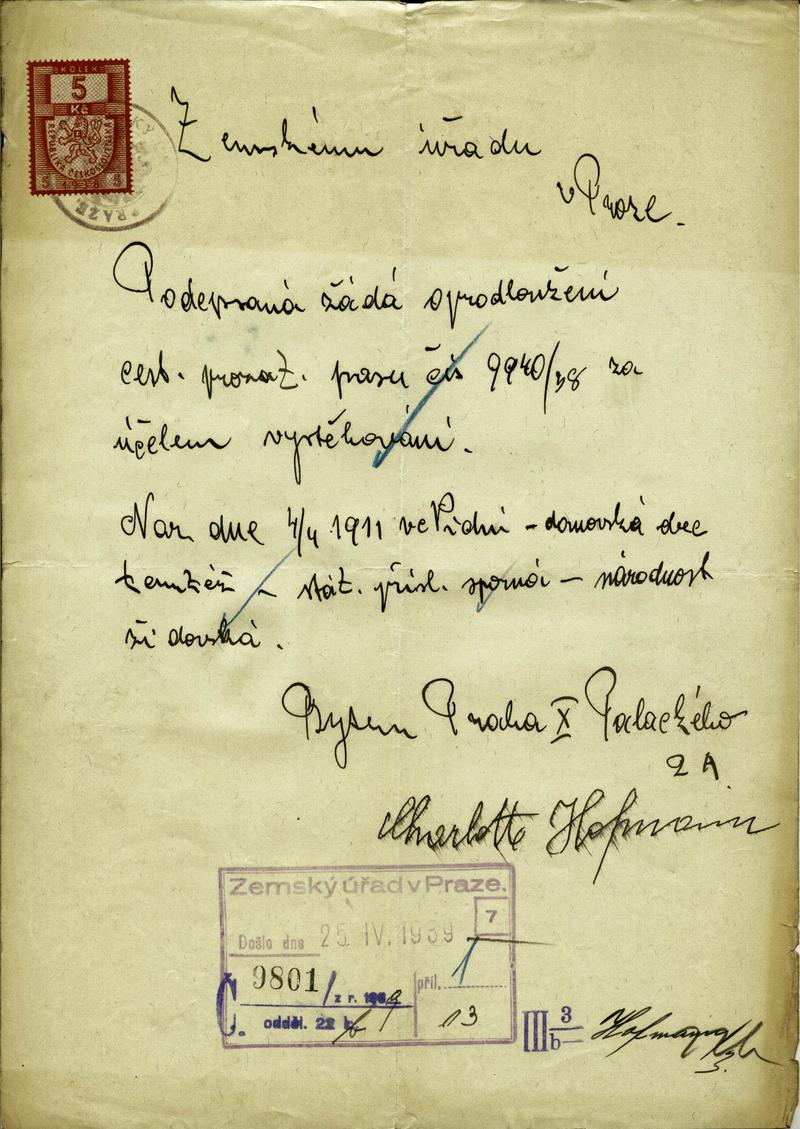 KOLEK
5
Kč
REPUBLIKA ČESKOSLOVENSKÁ
5 1938 5
PRAZE
Zemskému úřadu
v Praze.
Podepsaná žádá o prodloužení
cest. provaz. pasu čís 9940/38 za
účelem vystěhování.
Nar. dne 4/4 1911 ve Vídni – domovská obec
tamtéž – stát. přísl. sporná – národnost
židovská.
Bytem Praha X Palackého
2A.
Charlotte Hofmann
Zemský úřad v Praze.
7
Došlo dne 25. IV. 1939
Č. 9801/z r. 1939
příl. 1
odděl. 22 b
13
III 3
b